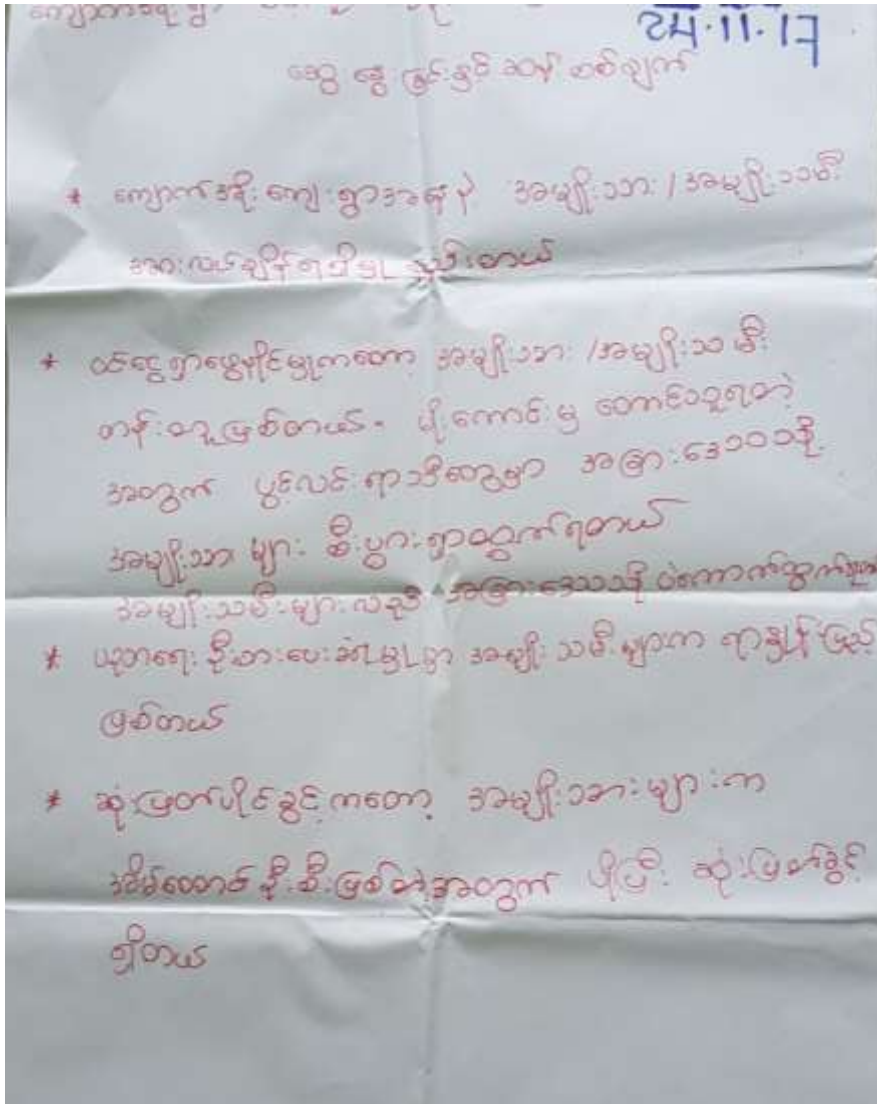 24.11.17
ဆွေးနွေးခြင်းနှင့် ဆန်းစစ်ချက်
* ကျောက်အိုး ကျေးရွာအနေနဲ့ အမျိုးသား / အမျိုးသမီး
အားလပ်ချိန်ရရှိမှု နည်းတယ်
* ဝင်ငွေရှာဖွေနိုင်မှုကတော့ အမျိုးသား / အမျိုးသမီး
တန်းတူဖြစ်တယ်။ မိုးကောင်းမှ တောင်သူရတဲ့
အတွက် ပွင့်လင်းရာသီတွေမှာ အခြားဒေသသို့
အမျိုးသားများ စီးပွားရှာထွက်ရတယ်
အမျိုးသမီးများလည်း အခြားဒေသသို့ ပဲကောက်ထွက်
* ပညာရေး ဦးစားပေးခံရမှုမှာ အမျိုးသမီးများက ရာနှုန်းပြည့်
ဖြစ်တယ်
* ဆုံးဖြတ်ပိုင်ခွင့်ကတော့ အမျိုးသားများက
အိမ်ထောင်ဦးစီးဖြစ်တဲ့အတွက် ပိုပြီး ဆုံးဖြတ်ခွင့်
ရှိတယ်